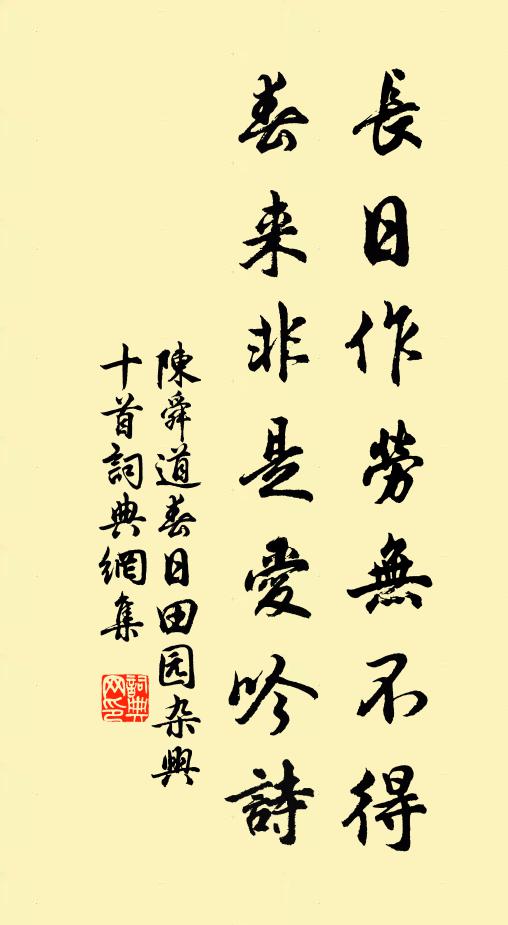 長日作勞無不得
春来非是愛吟詩
陳舜道春日田园杂興
十首詞典網集
詞典
网印